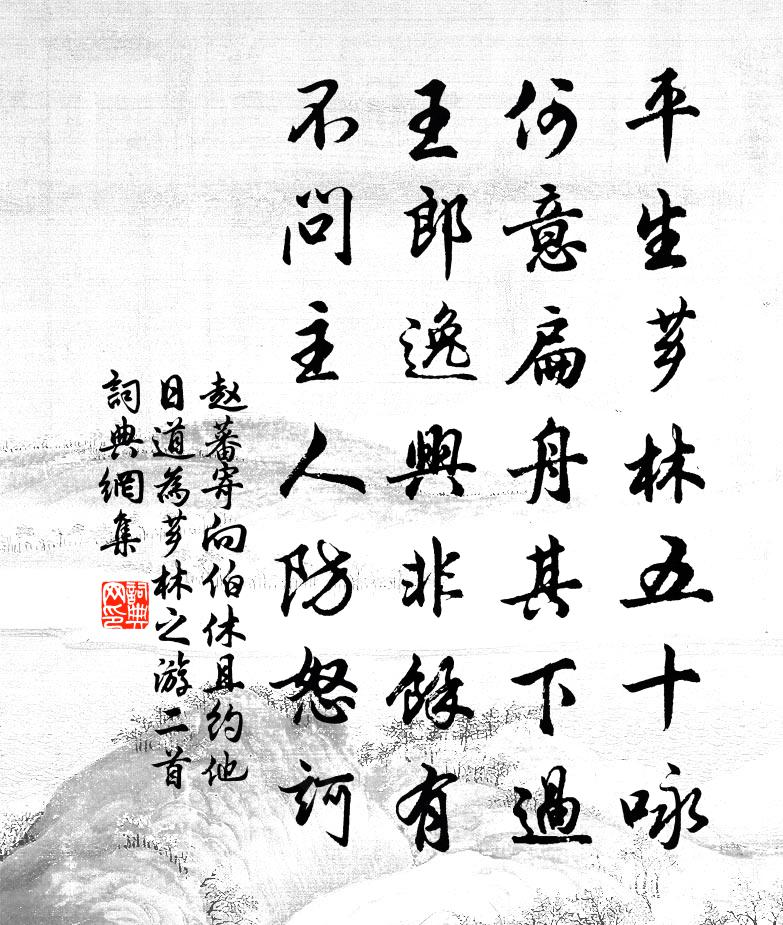 平生芗林五十咏
何意扁舟其下過
王郎逸興非餘有
不問主人防怒訶
赵蕃寄向伯休且约他
日道為芗林之游二首
詞典網集
詞典
网印